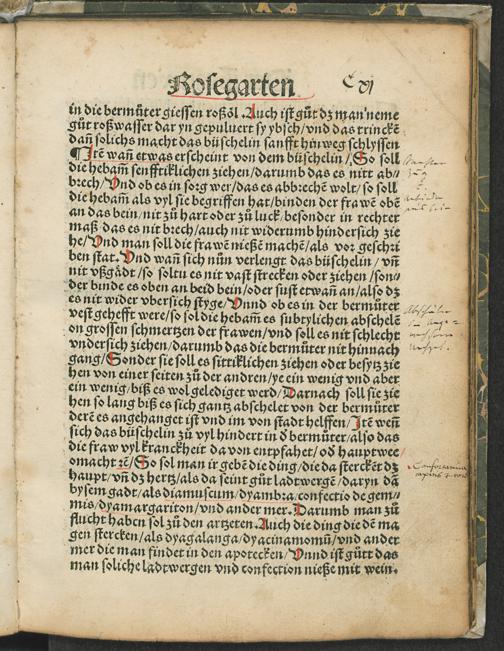 Rosegarten
C vj
in die bermůter giessen roßöl. Auch ist gůt dz man neme
gůt roßwasser dar yn gepuluert sy ybsch/vnd das trinckē
dañ solichs macht das büschelin sanfft hinweg schlyssen
¶ Itē wañ etwas erscheint von dem büschelin/ So soll
die hebam̃ senfftiklichen ziehen/darumb das es nitt ab/
brech/ Vnd ob es in sorg wer/das es abbrechē wolt/so soll
die hebam̃ als vyl sie begriffen hat/binden der frawē obē
an das bein/nit zů hart oder zů luck/besonder in rechter
maß das es nit brech/auch nit widerumb hindersich zie
he/ Vnd man soll die frawē nießē machē/als vor geschri
ben stat. Vnd wañ sich nůn verlengt das büschelin/ vñ
nit vßgādt/so soltu es nit vast strecken oder ziehen/son/
der binde es oben an beid bein/oder sust etwañ an/also dz
es nit wider vbersich styge/ Vnnd ob es in der bermůter
vest gehefft were/so sol die hebam̃ es subtylichen abschelē
on grossen schmertzen der frawen/vnd soll es nit schlecht
vndersich ziehen/darumb das die bermůter nit hinnach
gang/ Sonder sie soll es sittiklichen ziehen oder besytz zie
hen von einer seiten zů der andren/ye ein wenig vnd aber
ein wenig/biß es wol gelediget werd/ Darnach soll sie zie
hen so lang biß es sich gantz abschelet von der bermůter
derē es angehanget ist vnd im von stadt helffen/ Itē weñ
sich das büschelin zů vyl hindert in d̄ bermůter/also das
die fraw vyl kranckheit da von entpfahet/od̄ hauptwee/
omacht ꝛc̄/ So sol man ir gebē die ding/die da sterckēt dz
haupt/vñ dz hertz/als da seint gůt ladtwergē/daryn dā
bysem gadt/als diamuscum/dyambra/confectio de gem/
mis/dyamargariton/vnd ander mer. Darumb man zů
flucht haben sol zů den artzeten. Auch die ding die dē ma
gen stercken/als dyagalanga/dyacinamomū/vnd ander
mer die man findet in den apotecken/ Vnnd ist gůtt das
man soliche ladtwergen vnd confection nieße mit wein.